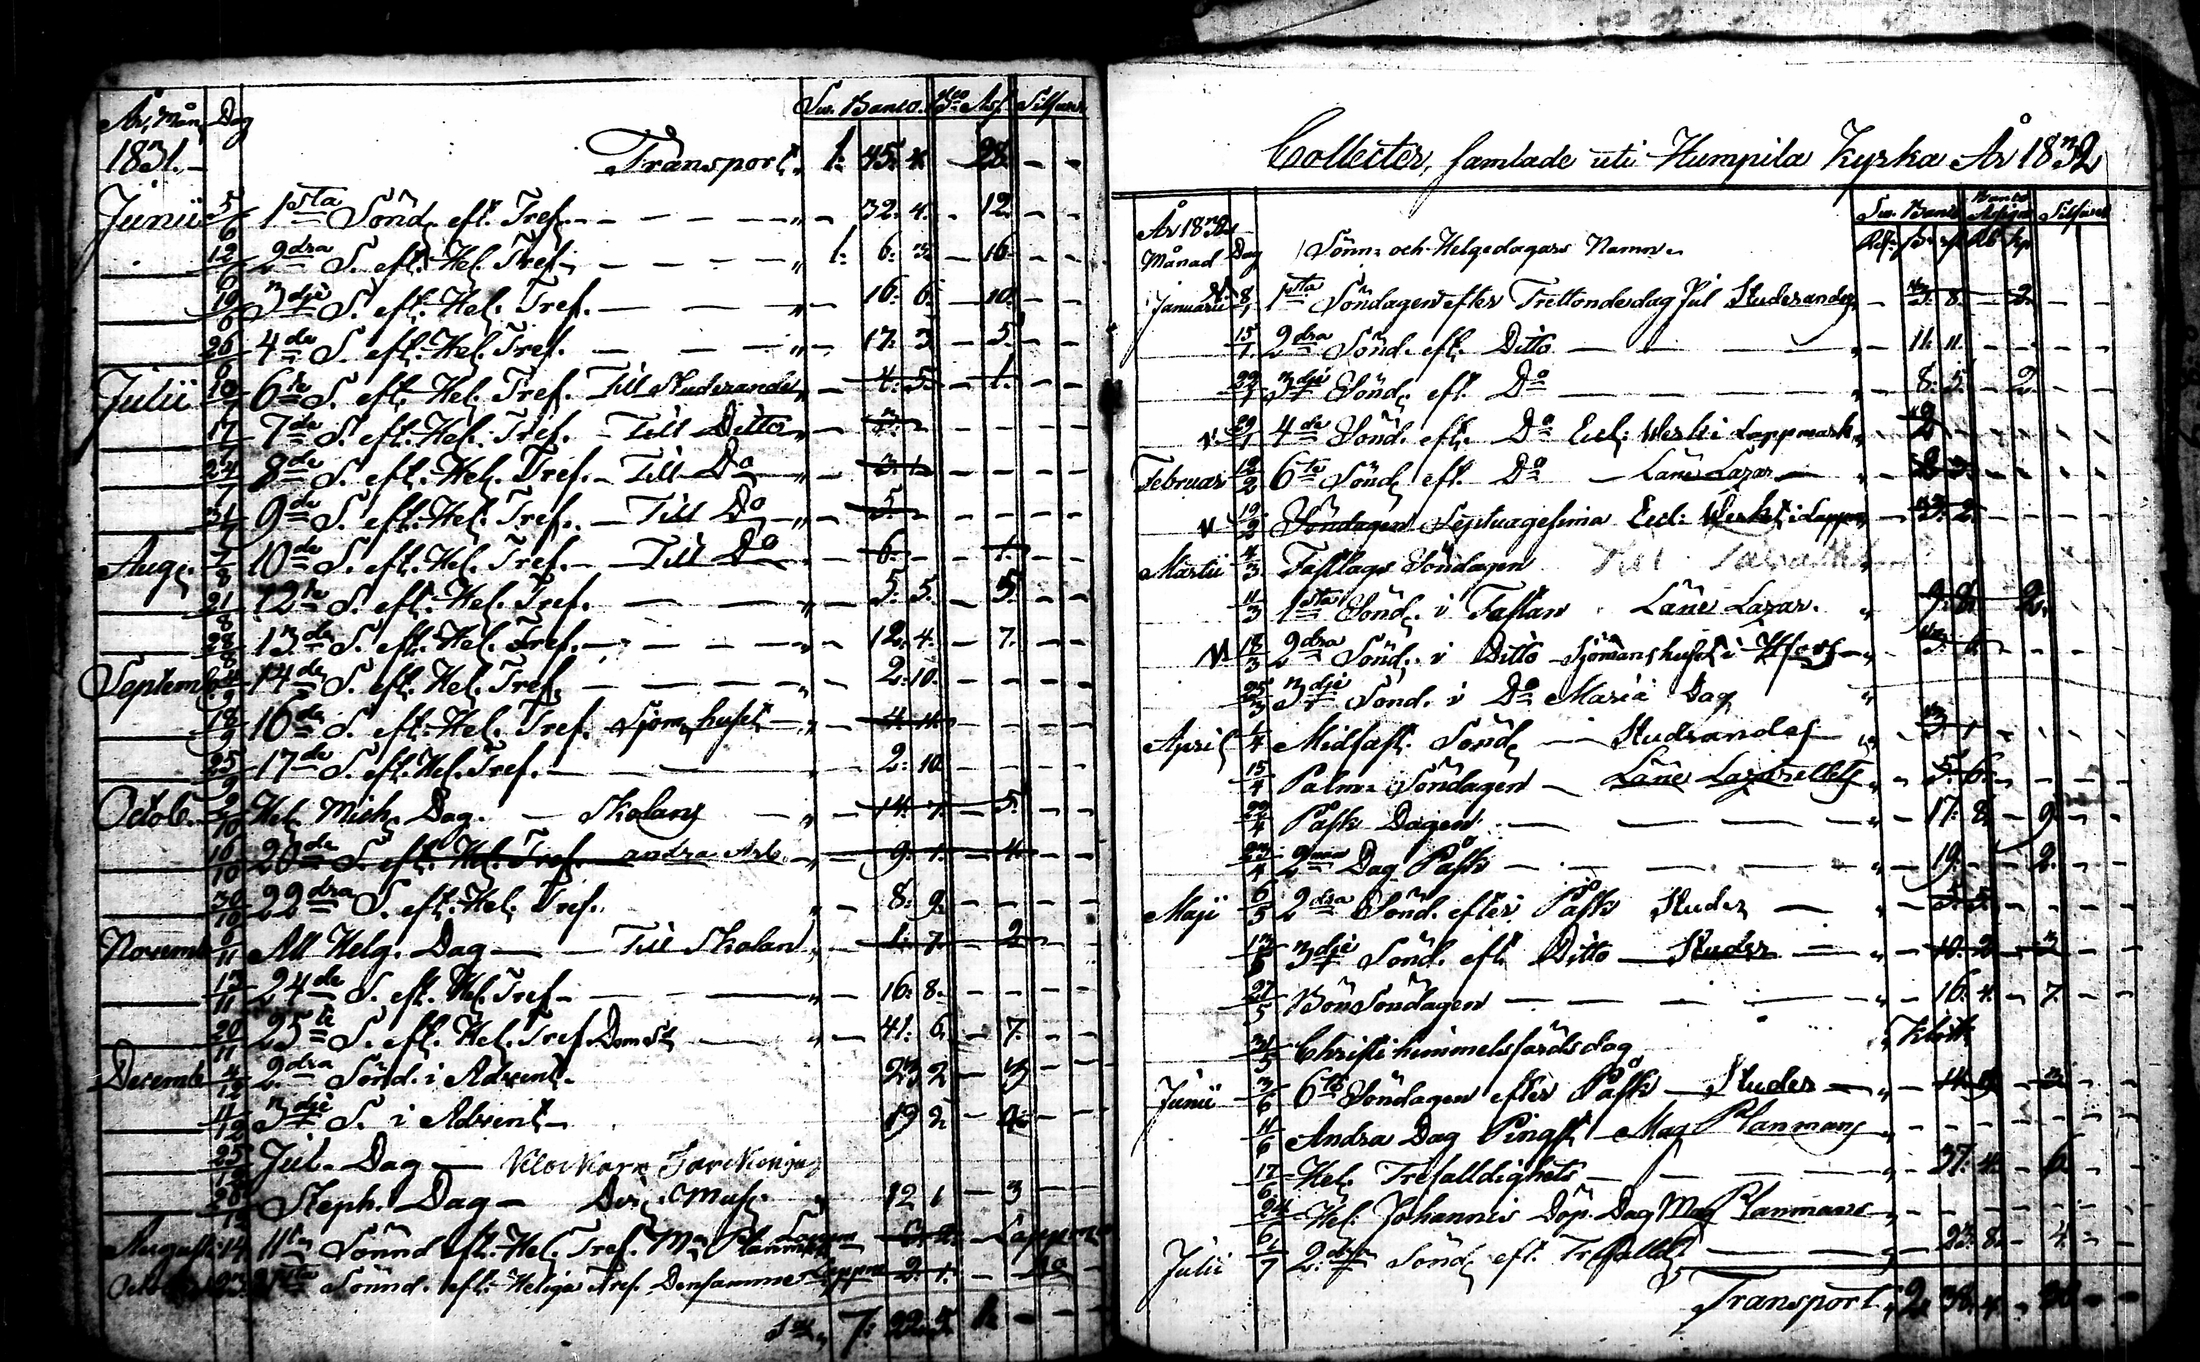 År, Mån, Dag Sw. Banco. Bco Ass. Silfver
1831. Transport 1: 45: 4. 28
Junii 5/6 1sta Sönd. eft. Tref. 32. 4. 12.
12/6 2dra S. eft. Hel. Tref. 1: 6: 3 16
19/6 3dje S. eft. Hel. Tref. 16: 6: 10.
26/6 4de S. eft. Hel. Tref. 17. 3 5.
Julii 10/7 6te S. eft. Hel. Tref. Till Studerande 4: 5. 1.
17/7 7de S. eft. Hel. Tref. Till Ditto
24/7 8de S. eft. Hel. Tref. Till Do 3. 1.
31/7 9de S. eft. Hel. Tref. Till Do 5.
Aug. 7/8 10de S. eft. Hel. Tref. Till Do 6. 1.
21/8 12te S. eft. Hel. Tref. 5. 5. 5.
28/8 13de S. eft. Hel. Tref. 12. 4. 7.
Septemb 4/9 14de S. eft. Hel. Tref. 2. 10.
18/9 16de S. eft. Hel. Tref. Sjöm. huset 4. 11.
25/9 17de S. eft. Hel. Tref. 2. 10
Octob. 2/10 Hel. Mich. Dag. Skolans 14. 7. 5.
16/10 20de S. eft. Hel. Tref. andra Arb. 9. 1. 4.
30/10 22dra S. eft. Hel. Tref. 8. 9.
Novemb 6/11 All Helg. Dag Till Skolan 1. 7. 2
13/11 24de S. eft. Hel. Tref. 16: 8.
20/11 25te S. eft. Hel. Tref. Domst 41. 6. 7.
Decemb 4/12 2dra Sönd. i Advent. 23 2 3
11/12 3dje S. i Advent 19 2
25/12 Jul. Dag Klockare
26/12 Steph. Dag 12 1 3
August. 14 11te Sönnd eft. Hel. Tref.
Octob. 23 21sta Sönnd. eft. Heliga Tref. Densamme Lappm 2. 1.
7: 22.
Collecter, samlade uti Humpila Kyrka År 1832
År 1832 Sw. Banco Banco Assign Silfver
Månad Dag Sönn- och Helgedagars Namn.
Januarii 8/1 1sta Söndagen efter Trettondedag Jul Studerandes 3. 8. 2.
15/1 2dra Sönd. eft. Ditto 11. 11.
22/1 3dje Sönd. eft. Do 8. 5. 2.
29/1 4de Sönd. eft. Do Eccl. Werk i Lappmark. 2
Februar 12/2 6te Sönd. eft. Do Läne Lazar 2 3.
19/2 Söndagen Septuagesima Eccl: Werket i Lappm 3. 2.
Martii 4/3 Fastlags Söndagen
11/3 1sta Sönd. i Fastan Läne Lazar. 9. 8. 2.
18/3 2dra Sönd. i Ditto Sjömanshuset i
25/3 3dje Sönd. i Do Mariæ Dag
April 1/4 Midfast. Sönd. Studrandes 3. 1
15/4 Palm-Söndagen Läne Lazarettets 5. 6.
22/4 Påsk Dagen 17. 8. 9.
23/4 2dra Dag Påsk 19. 2.
Maji 6/5 2dra Sönd. efter Påsk Studer 5. 5.
13/5 3dje Sönd. eft. Ditto Studer 10. 2. 3
27/5 Bön Söndagen 16. 4. 7.
31/5 Christi himmelsfärds dag Klock
Junii 3/6 6te Söndagen efter Påsk Studer
11/6 Andra Dag Pingst Mag Planmans
17/6 Hel. Trefaldighets 37. 4. 6
24/6 Hel. Johannis Döp. Dag Mag Planmans
Julii 2dra Sönd. eft. Trefalld 23. 8. 4.
Transport 2. 38. 4. 30